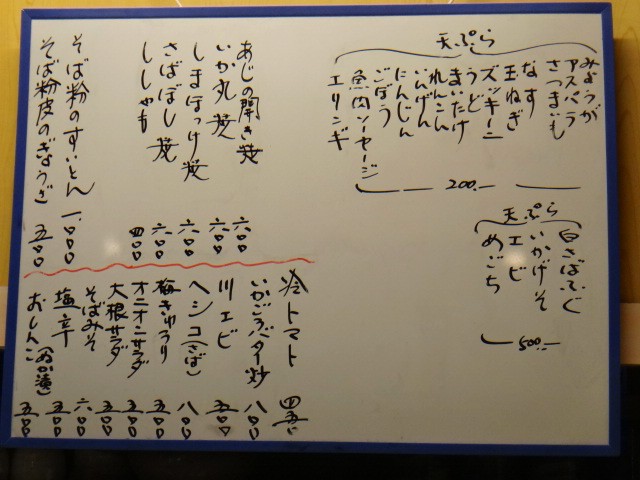 天ぷら
みょうが
アスパラ
さつまいも
なす
玉ねぎ
ズッキーニ
うど
まいたけ
れんこん
いんげん
にんじん
ごぼう
魚肉ソーセージ
エリンギ
200.-
天ぷら
白さばふぐ
いかげそ
エビ
めごち
500.-
あじの開き焼 六〇〇
いか丸焼 六〇〇
しまほっけ焼 六〇〇
さばぼし焼 六〇〇
ししゃも 四〇〇
そば粉のすいとん 一、〇〇〇
そば粉皮のぎょうざ 五〇〇
冷トマト 四五〇
いかごろバター炒 八〇〇
川エビ 五〇〇
ヘシコ(さば) 八〇〇
梅きゅうり 五〇〇
オニオンサラダ 五〇〇
大根サラダ 五〇〇
そばみそ 六〇〇
塩辛 五〇〇
おしんこ(ぬか漬) 五〇〇